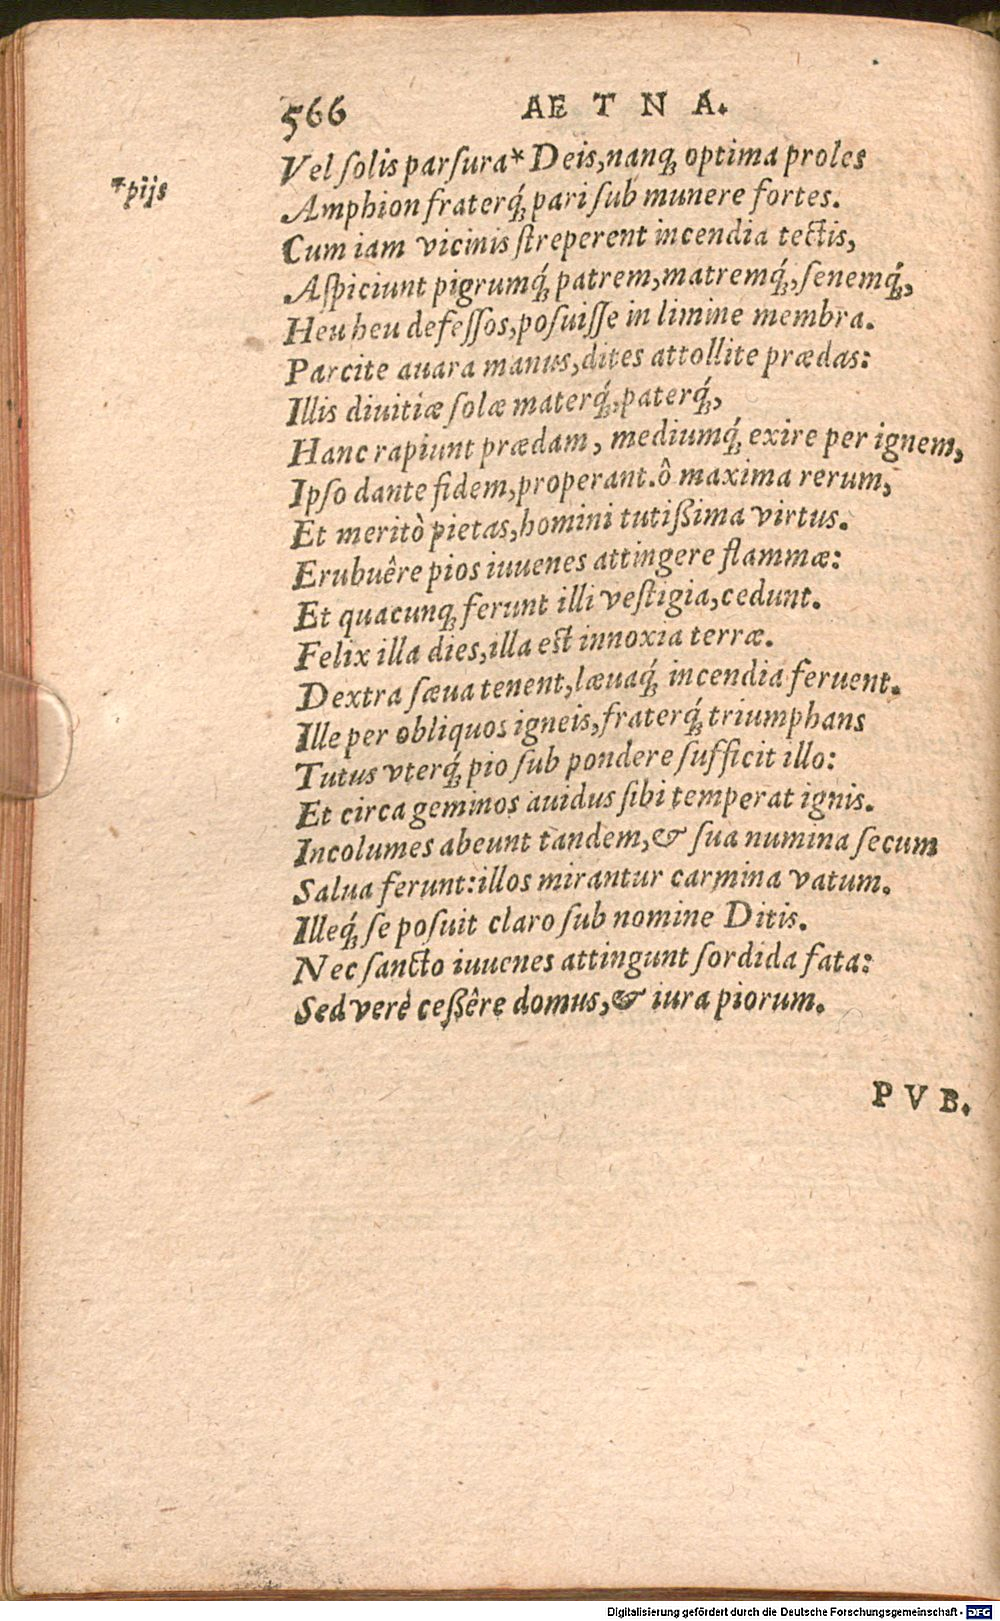 566 AETNA.
Vel ſolis parſura* Deis, nanq; optima proles
*pijs
Amphion fraterq́; pari ſub munere fortes.
Cum iam vicinis ſtreperent incendia tectis,
Aſpiciunt pigrumq́; patrem, matremq́;, ſenemq́;,
Heu heu defeſſos, poſuiſſe in limine membra.
Parcite auara manus, dites attollite prædas:
Illis diuitiæ ſolæ materq́;, paterq́;,
Hanc rapiunt prædam, mediumq́; exire per ignem,
Ipſo dante fidem, properant. ô maxima rerum,
Et meritò pietas, homini tutißima virtus.
Erubuêre pios iuuenes attingere flammæ:
Et quacunq; ferunt illi veſtigia, cedunt.
Felix illa dies, illa eſt innoxia terræ.
Dextra ſæua tenent, læuaq́; incendia feruent.
Ille per obliquos igneis, fraterq́; triumphans
Tutus vterq́; pio ſub pondere ſufficit illo:
Et circa geminos auidus ſibi temperat ignis.
Incolumes abeunt tandem, & ſua numina ſecum
Salua ferunt: illos mirantur carmina vatum.
Illeq́; ſe poſuit claro ſub nomine Ditis.
Nec ſancto iuuenes attingunt ſordida fata:
Sed verè ceßêre domus, & iura piorum.
PVB.
Digitalisierung gefördert durch die Deutsche Forschungsgemeinschaft - DFG